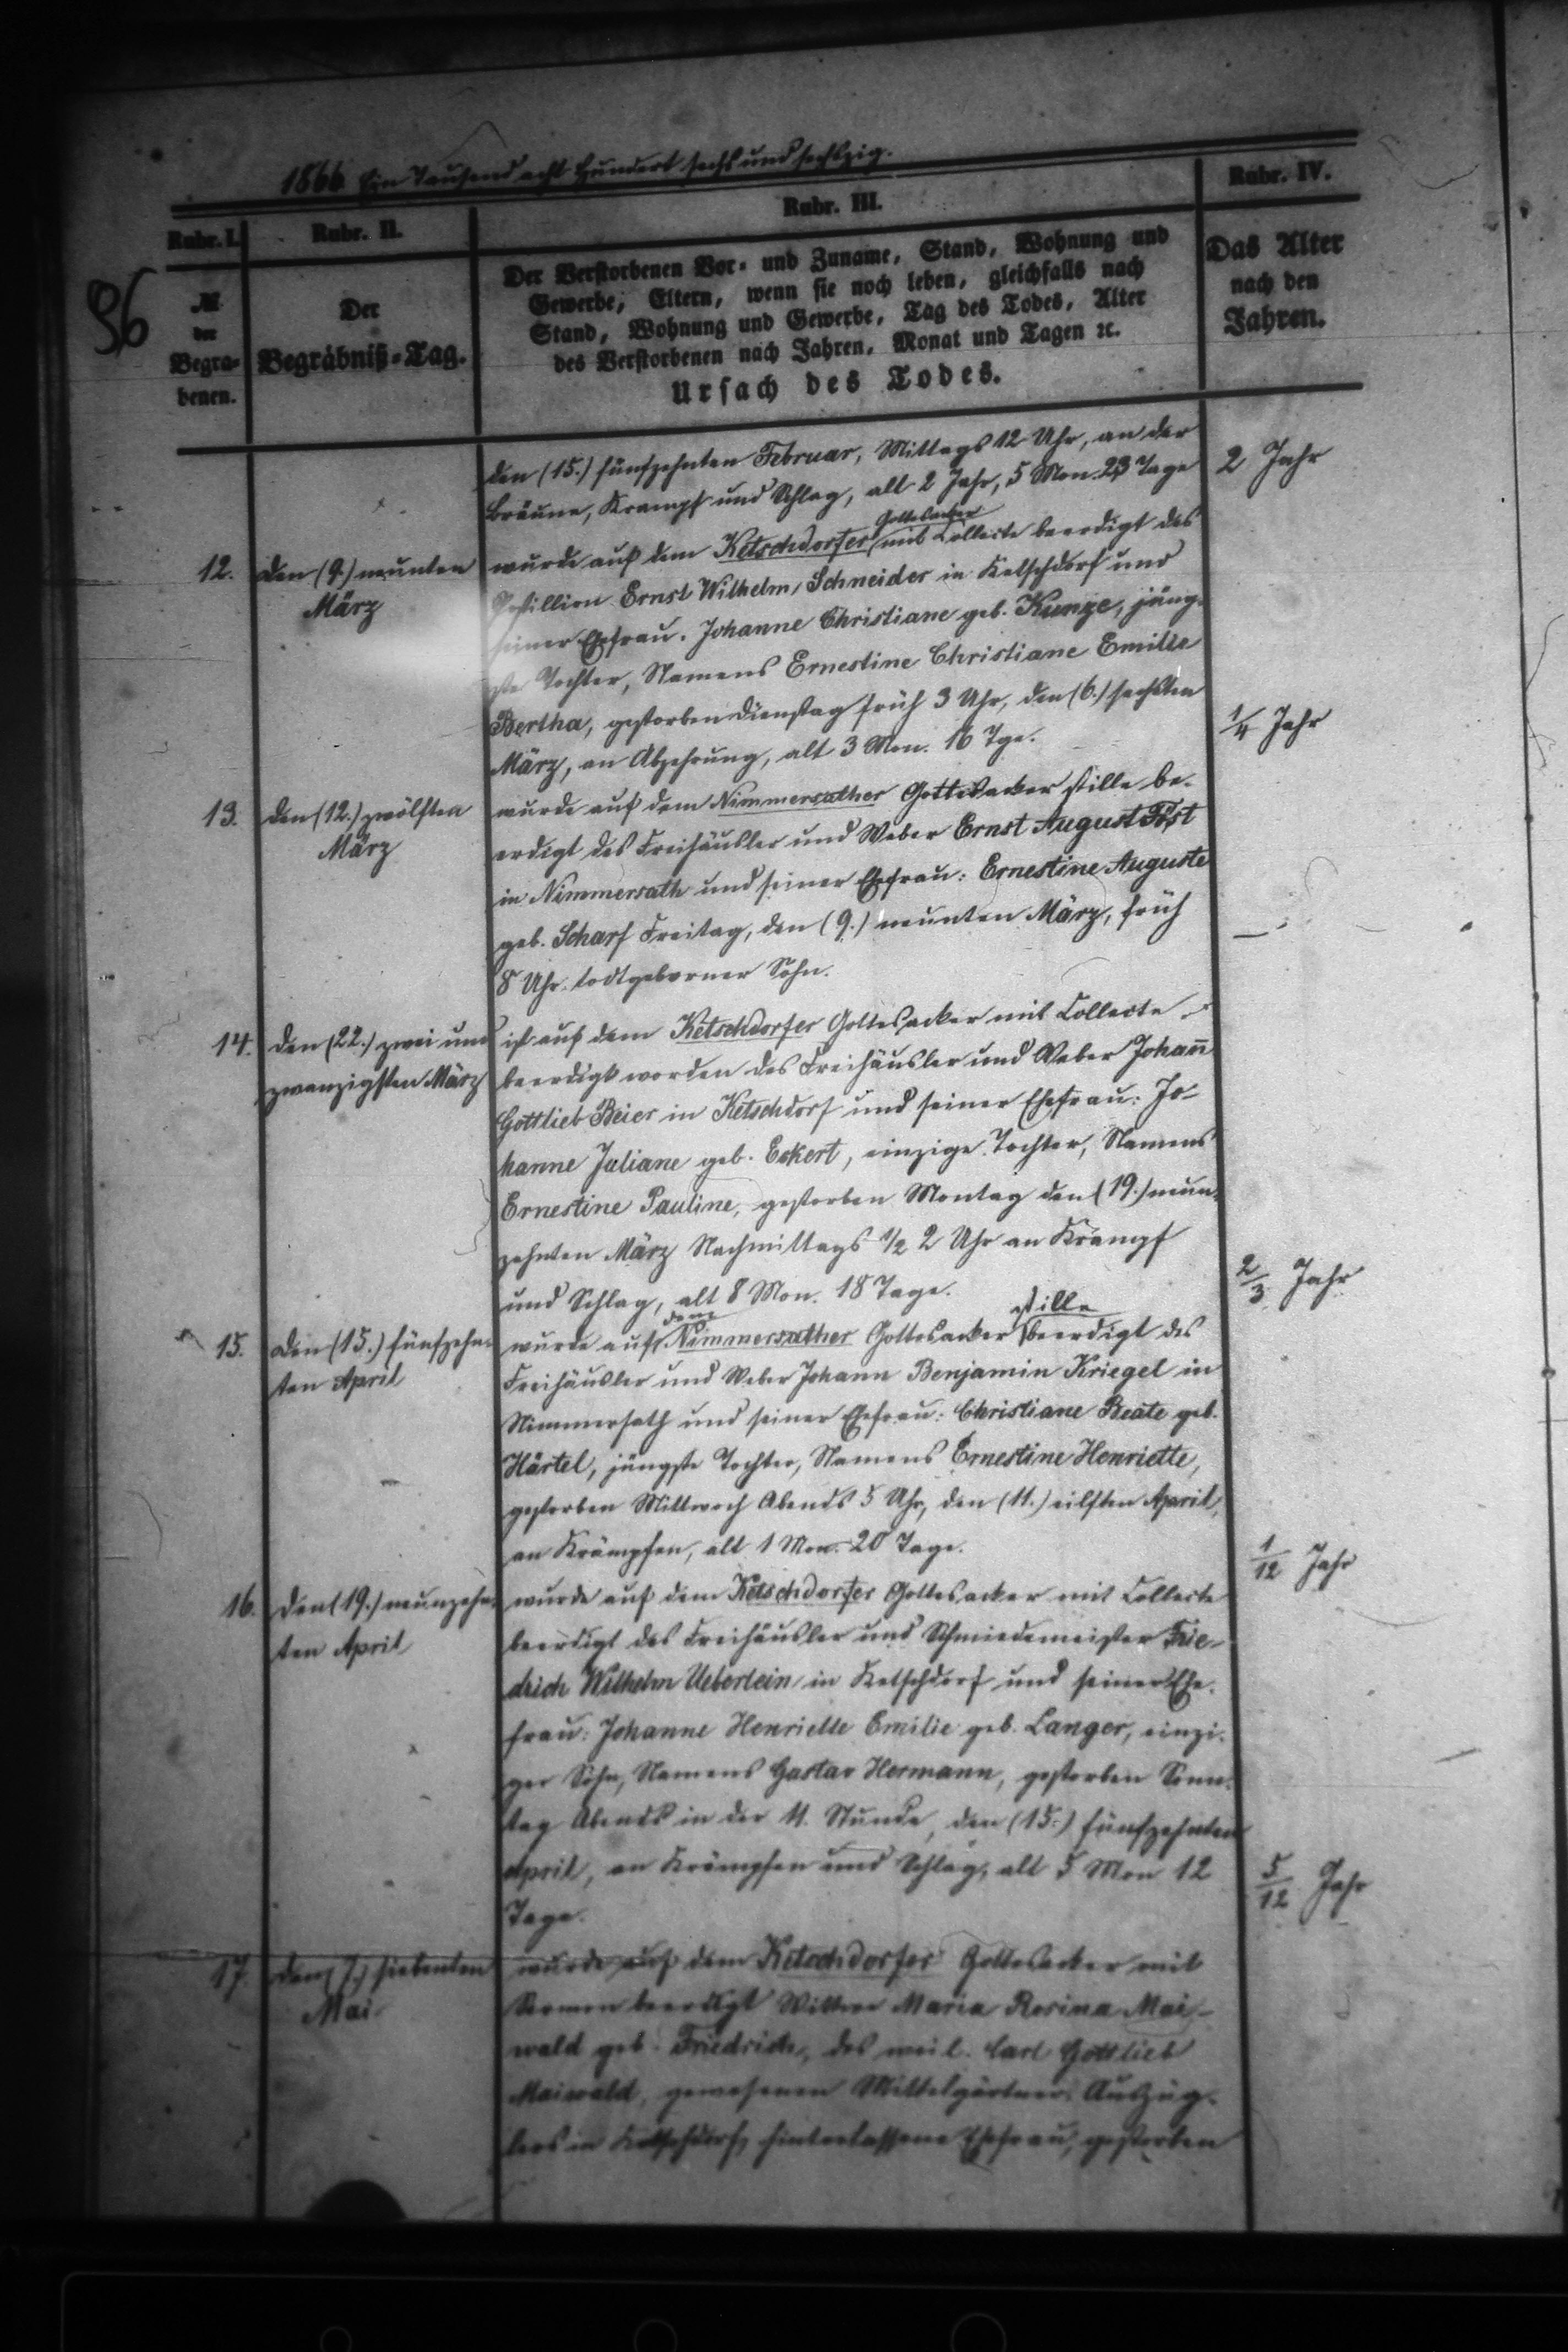 1866 Ein Tausend acht Hundert sechs und sechszig.
96
Rubr. I.
Rubr. II.
Rubr. III.
Rubr. IV.
№
der
Begra-
benen.
Der
Begräbniß-Tag.
Der Verstorbenen Vor- und Zuname, Stand, Wohnung und
Gewerbe, Eltern, wenn sie noch leben, gleichfalls nach
Stand, Wohnung und Gewerbe, Tag des Todes, Alter
des Verstorbenen nach Jahren, Monat und Tagen ꝛc.
Ursach des Todes.
Das Alter
nach den
Jahren.
den (15.) fünfzehnten Februar, Mittags 12 Uhr, an der
Bräune, Krampf und Schlag, alt 2 Jahr, 5 Mon. 23 Tage
2 Jahr
12.
den (9.) neunten
März
wurde auf dem Ketschdorfer Gottesacker mit Collecte beerdigt des
Postillion Ernst Wilhelm Schneider in Ketschdorf und
seiner Ehefrau: Johanne Christiane geb. Kunze, jüng-
ste Tochter, Namens Ernestine Christiane Emilie
Bertha, gestorben Dienstag früh 3 Uhr, den (6.) sechsten
März, an Abzehrung, alt 3 Mon. 16 Tge.
1/4 Jahr
13.
den (12.) zwölften
März
wurde auf dem Nimmersather Gottesacker stille be-
erdigt des Freihäusler und Weber Ernst August
in Nimmersath und seiner Ehefrau: Ernestine Auguste
geb. Scharf Freitag, den (9.) neunten März, früh
8 Uhr todtgeborner Sohn.
—
14.
den (22.) zwei und
zwanzigsten März
ist auf dem Ketschdorfer Gottesacker mit Collecte
beerdigt worden des Freihäusler und Weber Johan̄
Gottlieb Beier in Ketschdorf und seiner Ehefrau: Jo-
hanne Juliane geb. Eckert, einzige Tochter, Namens
Ernestine Pauline, gestorben Montag den (19.) neun-
zehnten März Nachmittags 1/2 2 Uhr an Krampf
und Schlag, alt 8 Mon. 18 Tage.
2/3 Jahr
15.
den (15.) fünfzehn-
ten April
wurde auf dem Nimmersather Gottesacker stille beerdigt des
Freihäusler und Weber Johann Benjamin Kriegel in
Nimmersath und seiner Ehefrau: Christiane Beate geb.
Härtel, jüngste Tochter, Namens Ernestine Henriette,
gestorben Mittwoch Abends 5 Uhr, den (11.) eilften April,
an Krämpfen, alt 1 Mon. 20 Tage.
1/12 Jahr
16.
den (19.) neunzehn-
ten April
wurde auf dem Ketschdorfer Gottesacker mit Collecte
beerdigt des Freihäusler und Schmiedemeister Frie-
drich Wilhelm Ueberlein in Ketschdorf und seiner Ehe-
frau: Johanne Henriette Emilie geb. Langer, einzi-
ger Sohn, Namens Gustav Hermann, gestorben Sonn-
tag Abends in der 11. Stunde, den (15.) fünfzehnten
April, an Krämpfen und Schlag, alt 5 Mon 12
Tage.
5/12 Jahr
17.
den (7.) siebenten
Mai
wurde auf dem Ketschdorfer Gottesacker mit
Sermon beerdigt Wittwe Maria Rosina Mai-
wald geb. Friedrich, des weil. Carl Gottlieb
Maiwald, gewesenen Mittelgärtner Auszüg-
lers in Ketschdorf, hinterlassene Ehefrau, gestorben